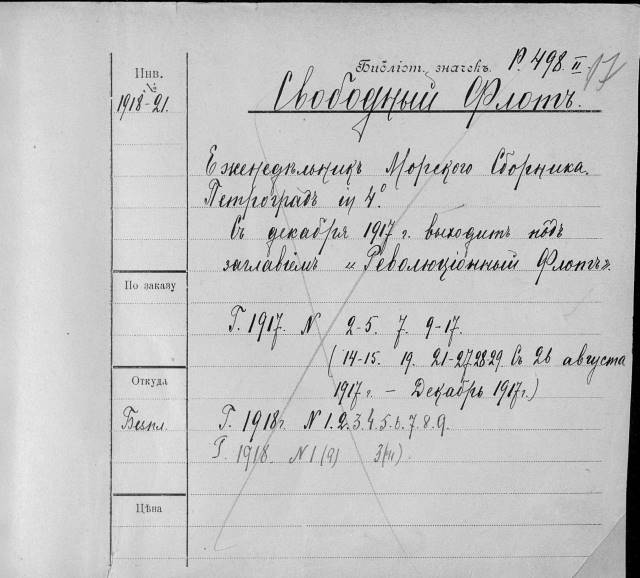 Библіот. значекъ. Р. 498 II 17
Инв.
№
1918-21.
Свободный Флотъ.
Еженедѣльникъ Морского Сборника.
Петроградъ in 4°.
Съ декабря 1917 г. выходитъ подъ
заглавіемъ "Революціонный Флотъ".
По заказу
Г. 1917. N 2-5. 7. 9-17.
(14-15. 19. 21-27.28.29. Съ 26 августа
1917 г. - Декабрь 1917 г.)
Откуда
Безпл.
Г. 1918 г. N 1. 2. 3. 4. 5. 6. 7. 8. 9.
Г. 1918. N 1
Цѣна